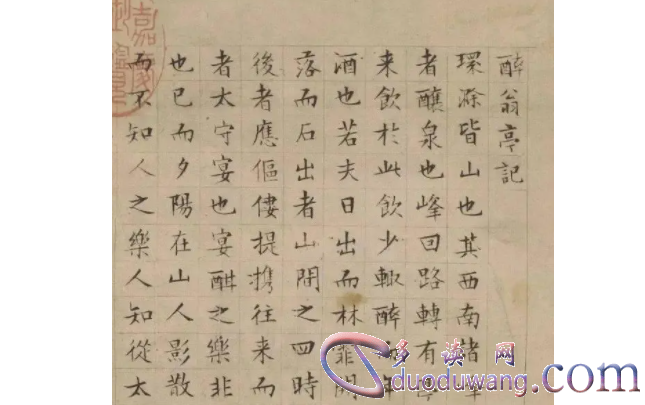 醉翁亭記
環滁皆山也其西南諸峰
者釀泉也峰回路轉有亭
来飲於此飲少輒醉年
酒也若夫日出而林霏開
落而石出者山間之四時
後者應傴僂提携往来而
者太守宴也宴酣之樂非
也已而夕陽在山人影散
而不知人之樂人知從太
嘉慶
多读网
duoduwang.com